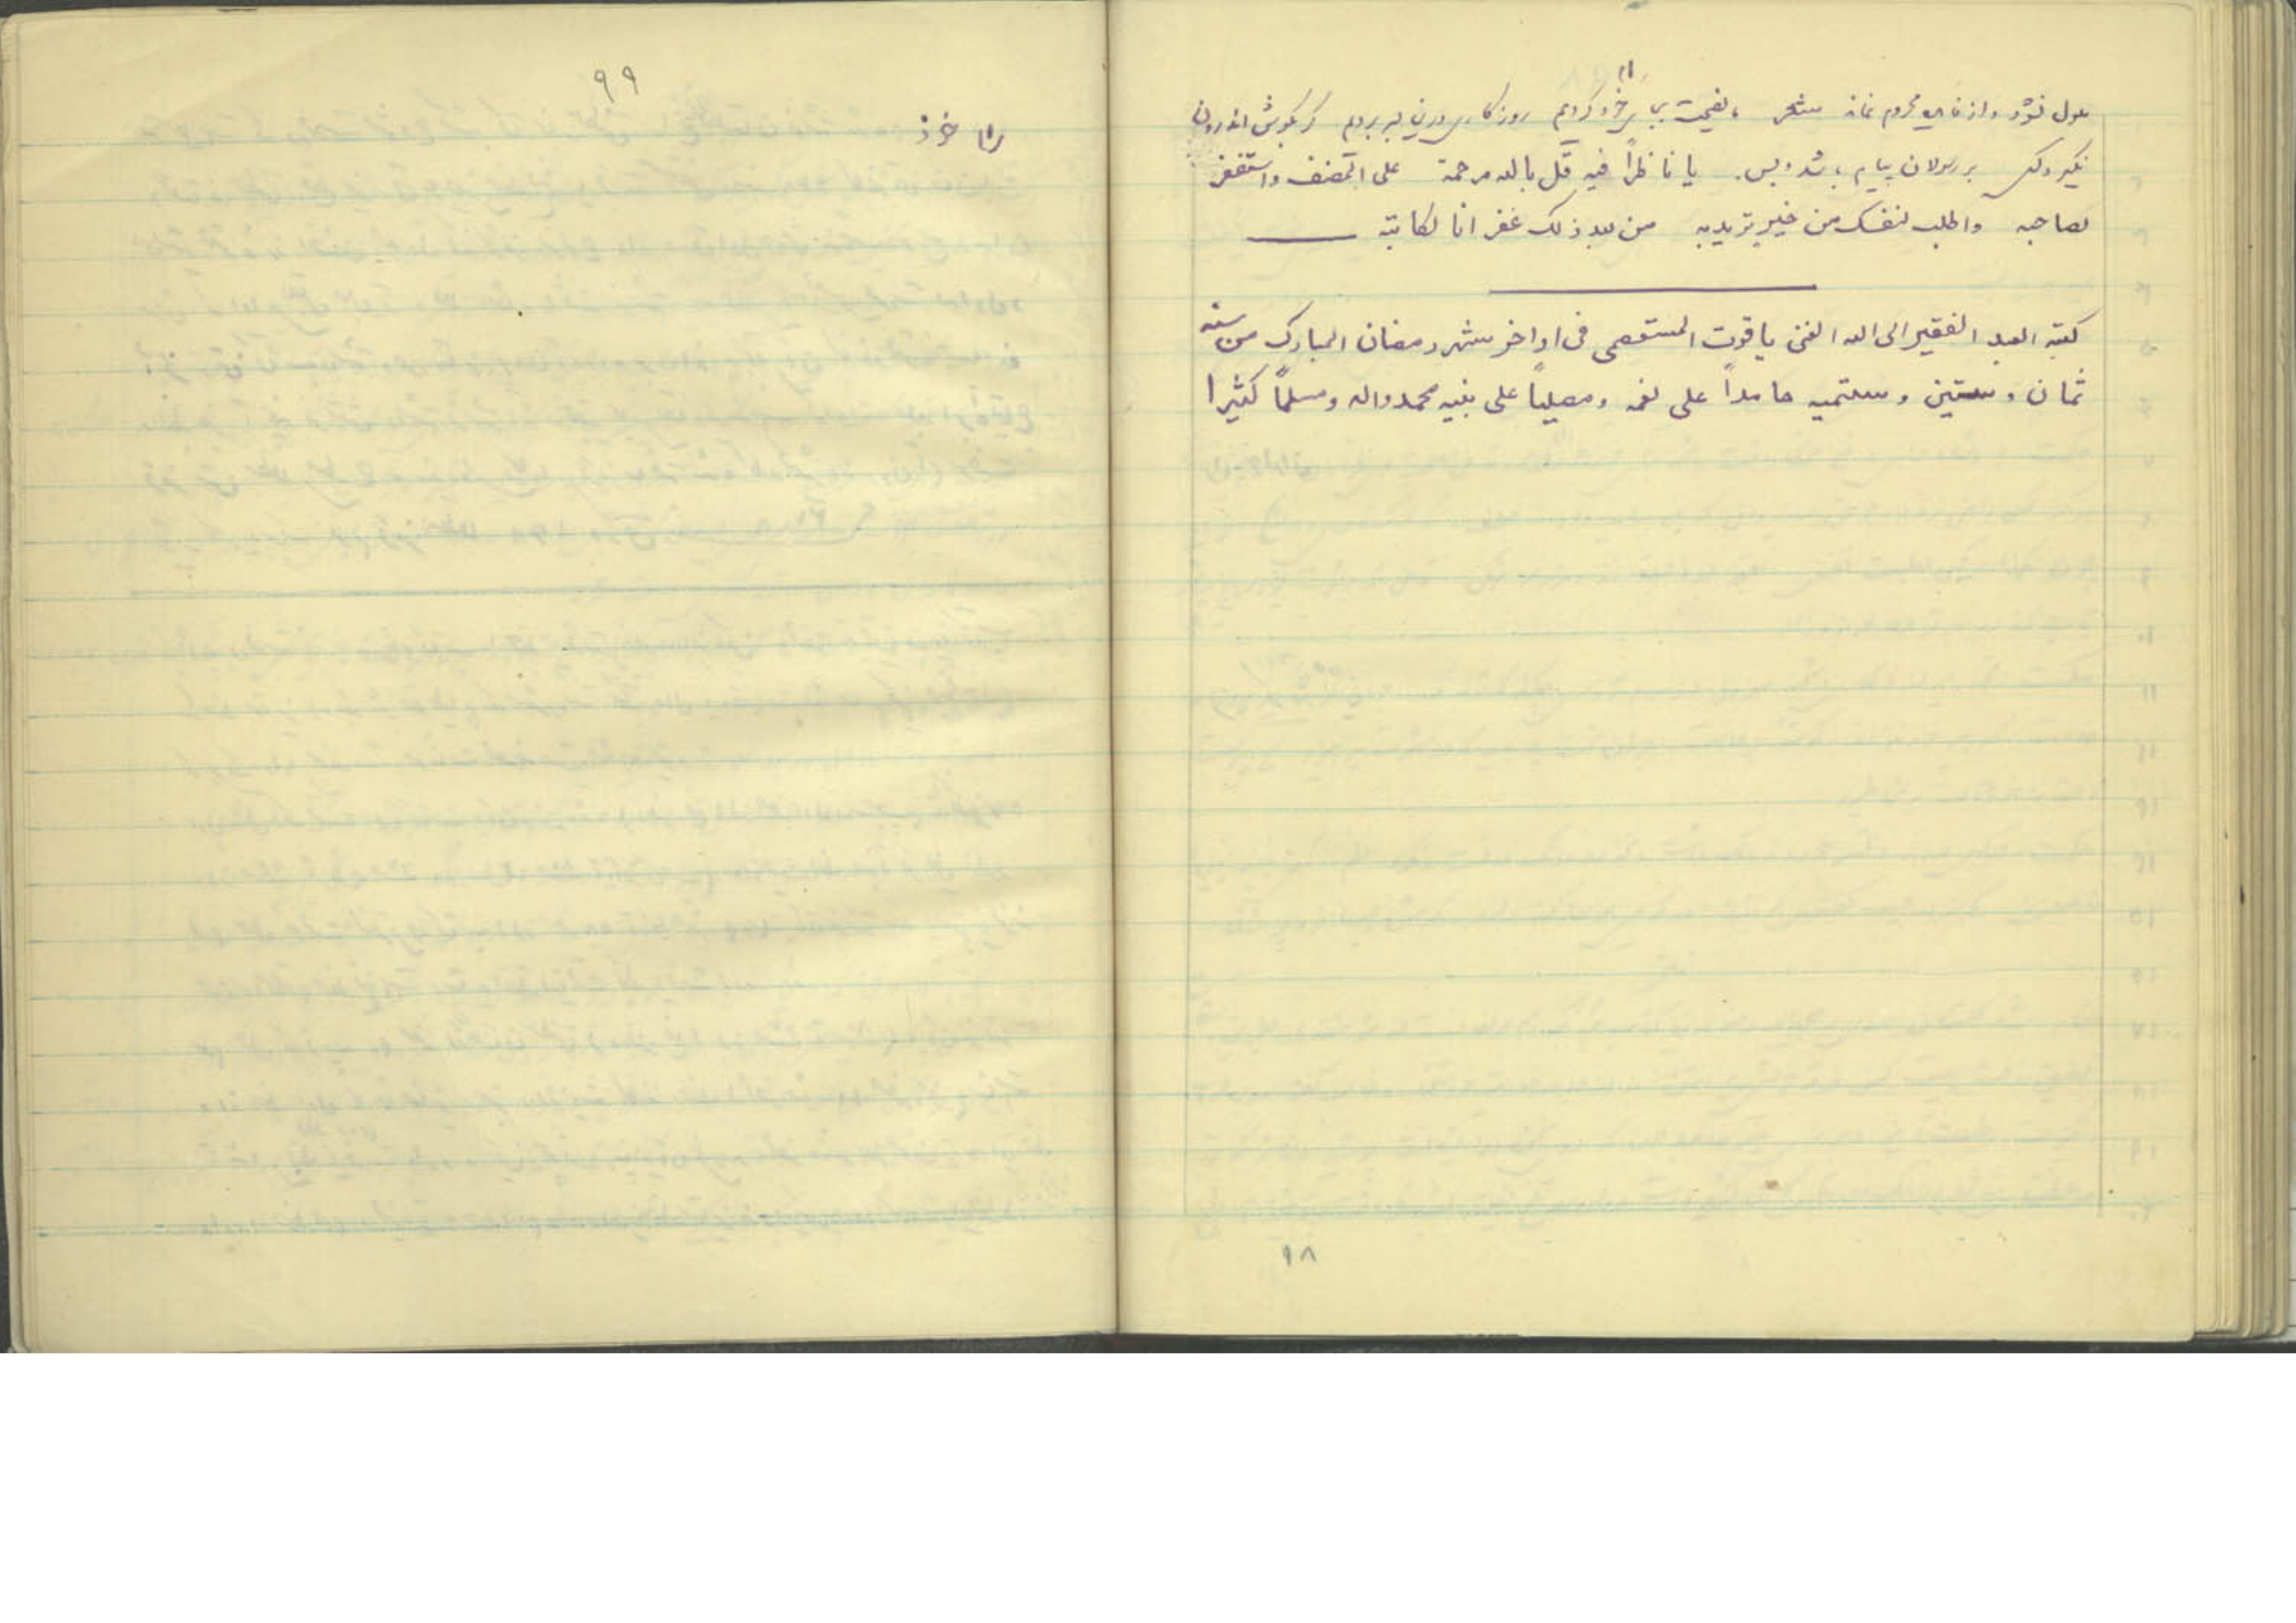 ملول نشود و از خاصیت محروم نماند شعر ما نصیحت بجای خود کردیم روزگاری درین بسر بردیم گر بگوش اندرون
نگیرد کس بر رسولان پیام باشد و بس. یا ناظراً فیه قل بالله مرحمة علی المصنف واستغفر
لصاحبه واطلب لنفسک من خیر ترید به من بعد ذلک غفرانا لکاتبه
کتبه العبد الفقیر الی الله الغنی یاقوت المستعصمی فی اواخر شهر رمضان المبارک من سنه
ثمان و ستین و ستمیه حامداً علی نعمه ومصلیاً علی نبیه محمد واله ومسلماً کثیرا
۹۸
۹۹